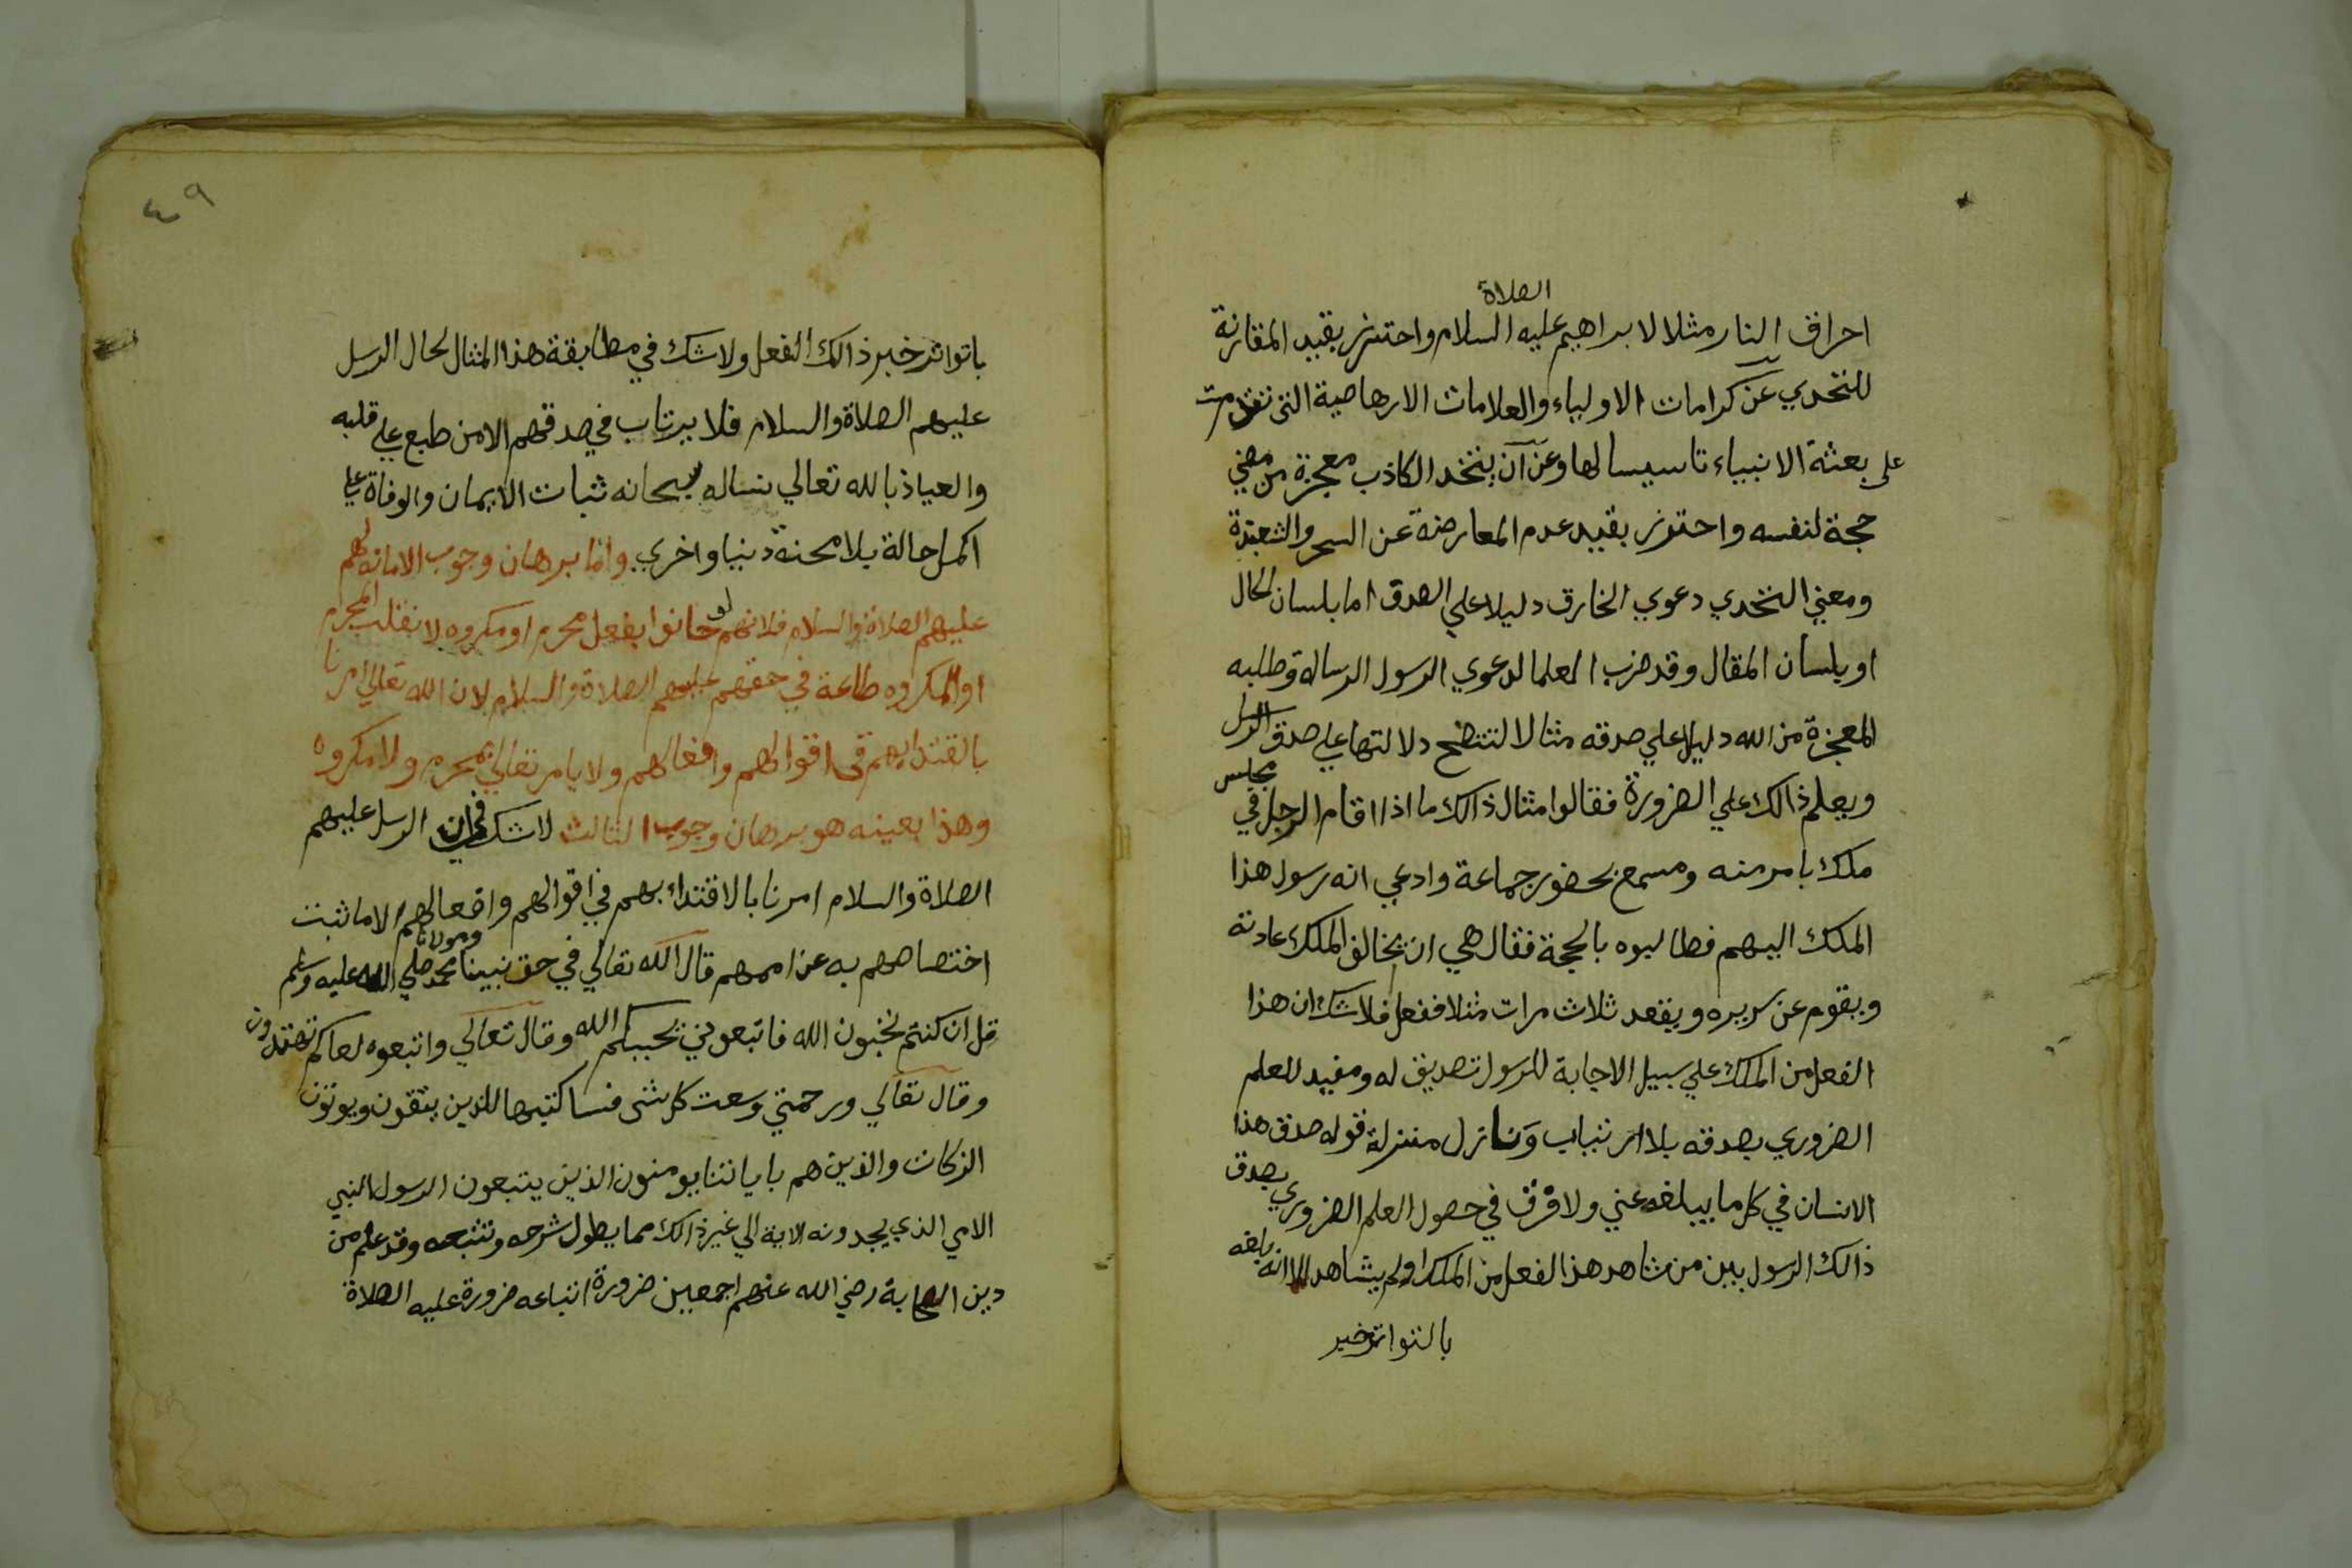 الصلاة
احراق النار مثلا لابراهيم عليه السلام واحترز بقيد المقارنة
للتحدي عن كرامات الاولياء والعلامات الارهاصية التى تقدمت
على بعثة الانبياء تاسيسا لها وعن ان يتخذ الكاذب معجزة من مضي
حجة لنفسه واحترز بقيد عدم المعارضة عن السحر والشعبذة
ومعني التحدي دعوي الخارق دليلا علي الصدق اما بلسان الحال
او بلسان المقال وقد ضرب العلما لدعوي الرسول الرسالة وطلبه
المعجزة من الله دليلا علي صدقه مثالا لتتضح دلالتها علي صدق الرسل
ويعلم ذالك علي الضرورة فقالوا مثال ذالك ما اذا اقام الرجل في مجلس
ملك بامر منه ومسمع بحضور جماعة وادعي انه رسول هذا
الملك اليهم فطالبوه بالحجة فقال هي ان يخالف الملك عادته
ويقوم عن سريره ويقعد ثلاث مرات مثلا ففعل فلاشك ان هذا
الفعل من الملك علي سبيل الاجابة للرسول تصديق له ومفيد للعلم
الضروري بصدقه بلا ارتياب ونازل منزلة قوله صدق هذا
الانسان في كل ما يبلغه عني ولا فرق في حصول العلم الضروري بصدق
ذالك الرسول بين من شاهد هذ الفعل من الملك او لم يشاهد الا انه بلغه
بالتواتر خبر
٤٩
باتواتر خبر ذالك الفعل ولا شك في مطابقة هذا المثال لحال الرسل
عليهم الصلاة والسلام فلا يرتاب في صدقهم الا من طبع علي قلبه
والعياذ بالله تعالي نساله سبحانه ثبات الايمان والوفاة علي
اكمل حالة بلا محنة دنيا واخري واما برهان وجوب الامانة لهم
عليهم الصلاة والسلام فلانهم لو خانوا بفعل محرم او مكروه لانقلب المحرم
او المكروه طاعة في حقهم عليهم الصلاة والسلام لان الله تعالي امرنا
بالقتدا بهم في اقوالهم وافعالهم ولا يامر تعالي بمحرم ولا مكروه
وهذا بعينه هو برهان وجوب الثالث لاشك في ان الرسل عليهم
الصلاة والسلام امرنا بالاقتداء بهم في اقوالهم وافعالهم الا ما ثبت
اختصاصهم به عن اممهم قال الله تعالي في حق نبينا ومولانا محمد صلي الله عليه وسلم
قل ان كنتم تحبون الله فاتبعوني يحببكم الله وقال تعالي واتبعوه لعلكم تهتدون
وقال تعالي ورحمتي وسعت كل شى فسا كتبها للذين يتقون ويوتون
الزكات والذين هم باياتنا يومنون الذين يتبعون الرسول النبي
الامي الذي يجدونه الاية الي غير ذالك مما يطول شرحه وتتبعه وقد علم من
دين الصحابة رضي الله عنهم اجمعين ضرورة اتباعه ضرورة عليه الصلاة